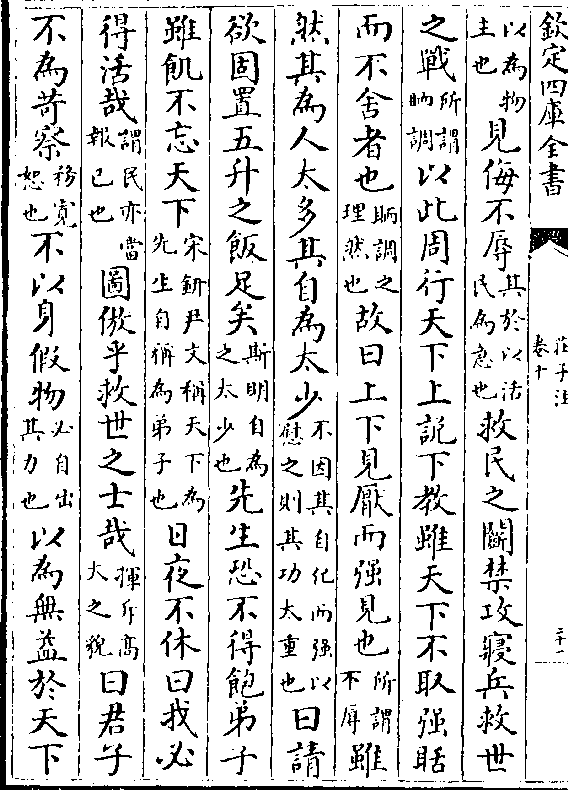 欽定四庫全書
莊子注
卷十
二十一
以為物主也見侮不辱其於以活民為急也救民之鬬禁攻寢兵救世
之戰所謂聏調以此周行天下上說下教雖天下不取强聒
而不舍者也聏調之理然也故曰上下見厭而强見也所謂不辱雖
然其為人太多其自為太少不因其自化而强以慰之則其功太重也曰請
欲固置五升之飯足矣斯明自為之太少也先生恐不得飽弟子
雖飢不忘天下宋鈃尹文稱天下為先生自稱為弟子也日夜不休曰我必
得活哉謂民亦當報已也圖傲乎救世之士哉揮斥高大之貌曰君子
不為苛察務寛恕也不以身假物必自出其力也以為無益於天下